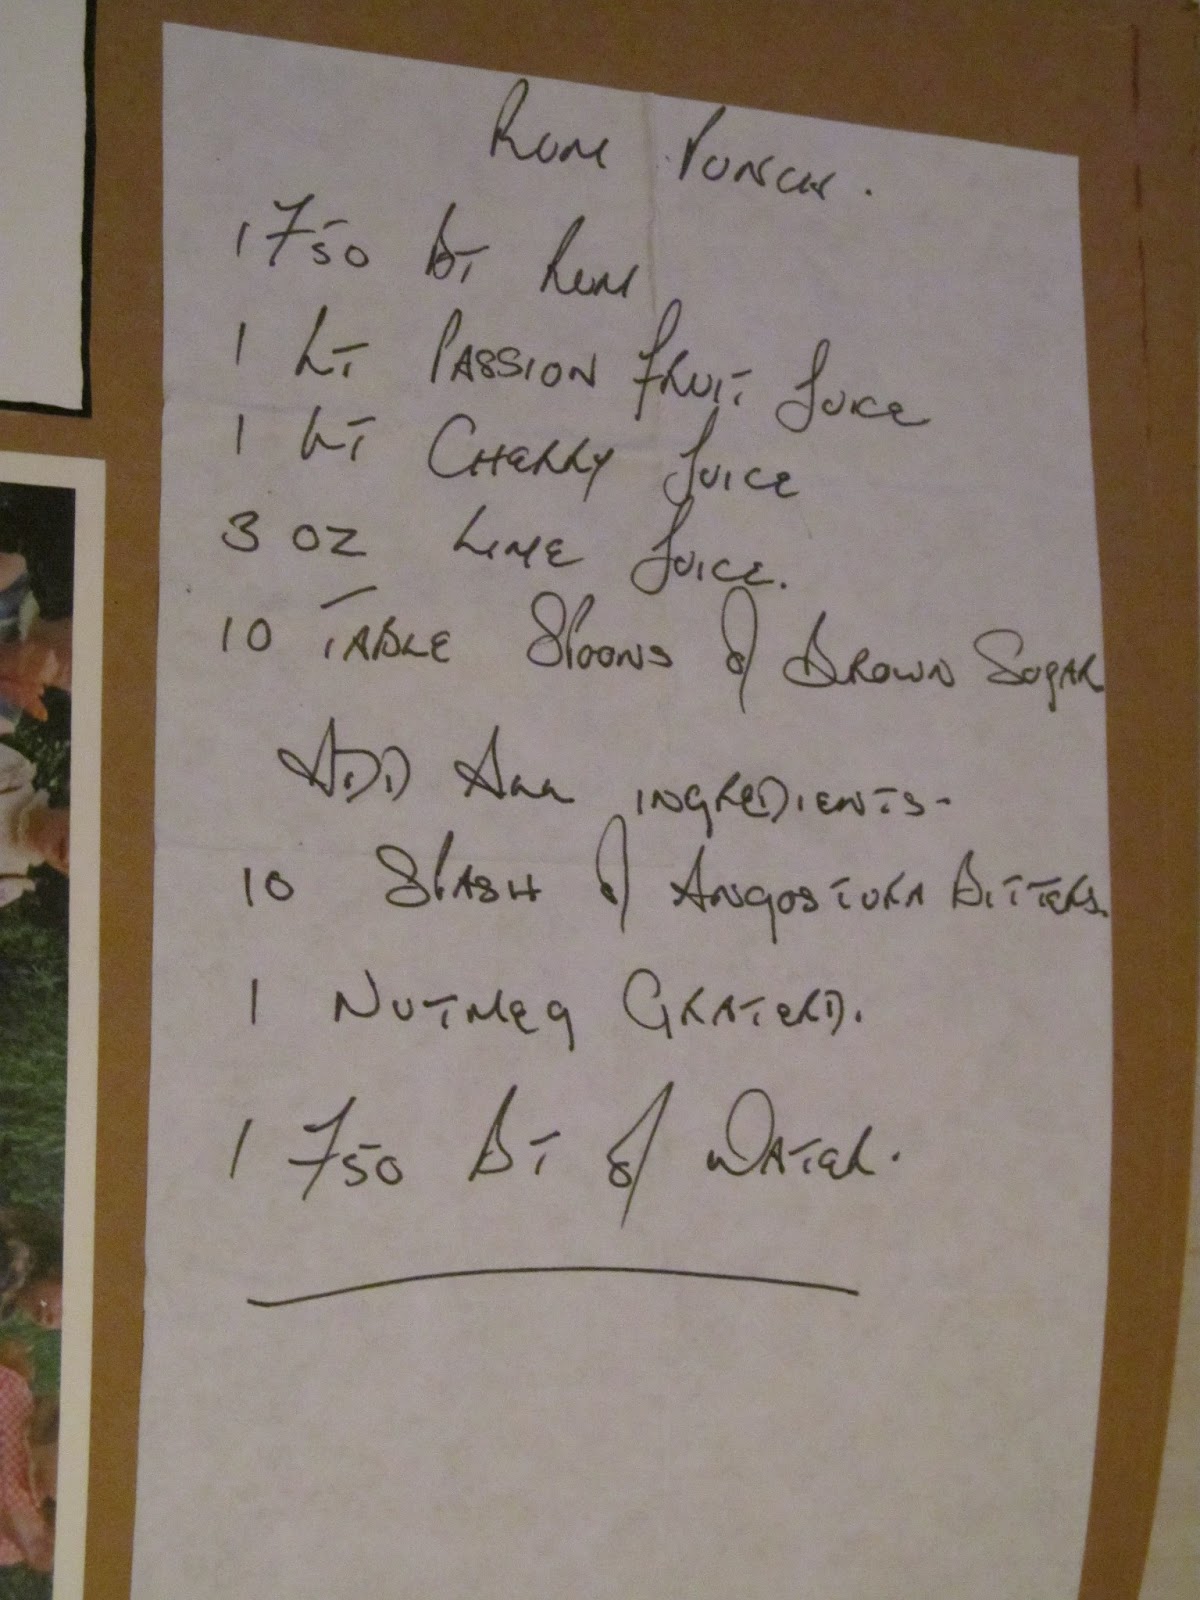 Rum Punch.
1 750 BT Rum
1 LT PASSION FRUIT JUICE
1 LT CHERRY JUICE
3 OZ LIME JUICE.
10 TABLE SPOONS of BROWN SUGAR
ADD ALL INGREDIENTS-
10 SPLASH of ANGOSTURA BITTERS.
1 NUTMEG GRATERD.
1 750 BT of WATER.